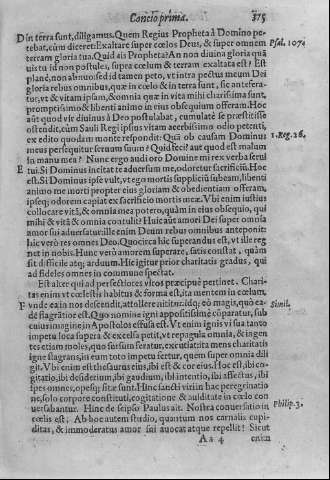 Concio prima. 375
D in terra sunt, diligamus. Quem Regius Propheta à Domino pe-
tebat, cùm diceret: Exaltare super cœlos Deus, & super omnem Psal. 107.
terram gloria tua. Quid ais Propheta? An non diuina gloria quā
uis tu id non postules, supra cœlum & terram exaltata est? Est
planè, non abnuo: sed id tamen peto, vt intra pectus meum Dei
gloria rebus omnibus, quæ in cœlo & in terra sunt, sic antefera-
tur, vt & vitam ipsam, & omnia quæ in vita mihi charissima sunt,
promptissimo & libenti animo in eius obsequium offeram. Hoc
aūt quod vir diuinus à Deo postulabat, cumulatè se præstitisse
ostendit, cùm Sauli Regi ipsius vitam acerbissimo odio petenti,
ex edito quodam monte respondit: Quā ob causam Dominus 1. Reg. 26.
meus persequitur seruum suum? Quid feci? aut quod est malum
in manu mea? Nunc ergo audi oro Domine mi rex verba serui
E tui. Si Dominus incitat te aduersum me, odoretur sacrificiū. Hoc
est. Si Dominus ipse vult, vt ego mortis suppliciū subeam, libenti
animo me morti propter eius gloriam & obedientiam offeram,
ipseq; odorem capiat ex sacrificio mortis meæ. Vbi enim iustius
collocare vitā, & omnia mea potero, quàm in eius obsequio, qui
mihi & vitā & omnia contulit? Huic aūt amori Dei super omnia
amor sui aduersatur: ille enim Deum rebus omnibus anteponit:
hic verò res omnes Deo. Quocirca hic superandus est, vt ille reg-
net in nobis. Hunc verò amorem superare, satis constat, quàm
sit difficile atq; arduum. Hic igitur prior charitatis gradus, qui
ad fideles omnes in commune spectat.
Est alter qui ad perfectiores viros præcipuè pertinet. Chari-
tas enim vt cœlestis habitus & forma est, ita mentem in cœlum,
F vnde ea in nos descendit, attollere nititur. idq; eò magis, quò ea- Simil.
dē flagrātior est. Quo nomine igni appositissimè cōparatur, sub
cuius imagine in Apostolos effusa est. Vt enim ignis vi sua tanto
impetu loca supera & excelsa petit, vt repagula omnia, & ingen-
tes etiam moles, quo sursum feratur, excutiat: ita mens charitatis
igne flagrans, in eum toto impetu fertur, quem super omnia dili
git. Vbi enim est thesaurus eius, ibi est & cor eius. Hoc est, ibi co-
gitatio, ibi desiderium, ibi gaudium, ibi intentio, ibi affectus, ibi
spes omnes, opesq; sitæ sunt. Hinc sancti viri in hac peregrinatio
ne, solo corpore constituti, cogitatione & auiditate in cœlo con
uersabantur. Hinc de seipso Paulus ait. Nostra conuersatio in Philip. 3.
cœlis est, Ab hoc autem studio, quantum nos carnalis cupi-
ditas, & immoderatus amor sui auocat atque repellit! Sicut
Aa 4 enim